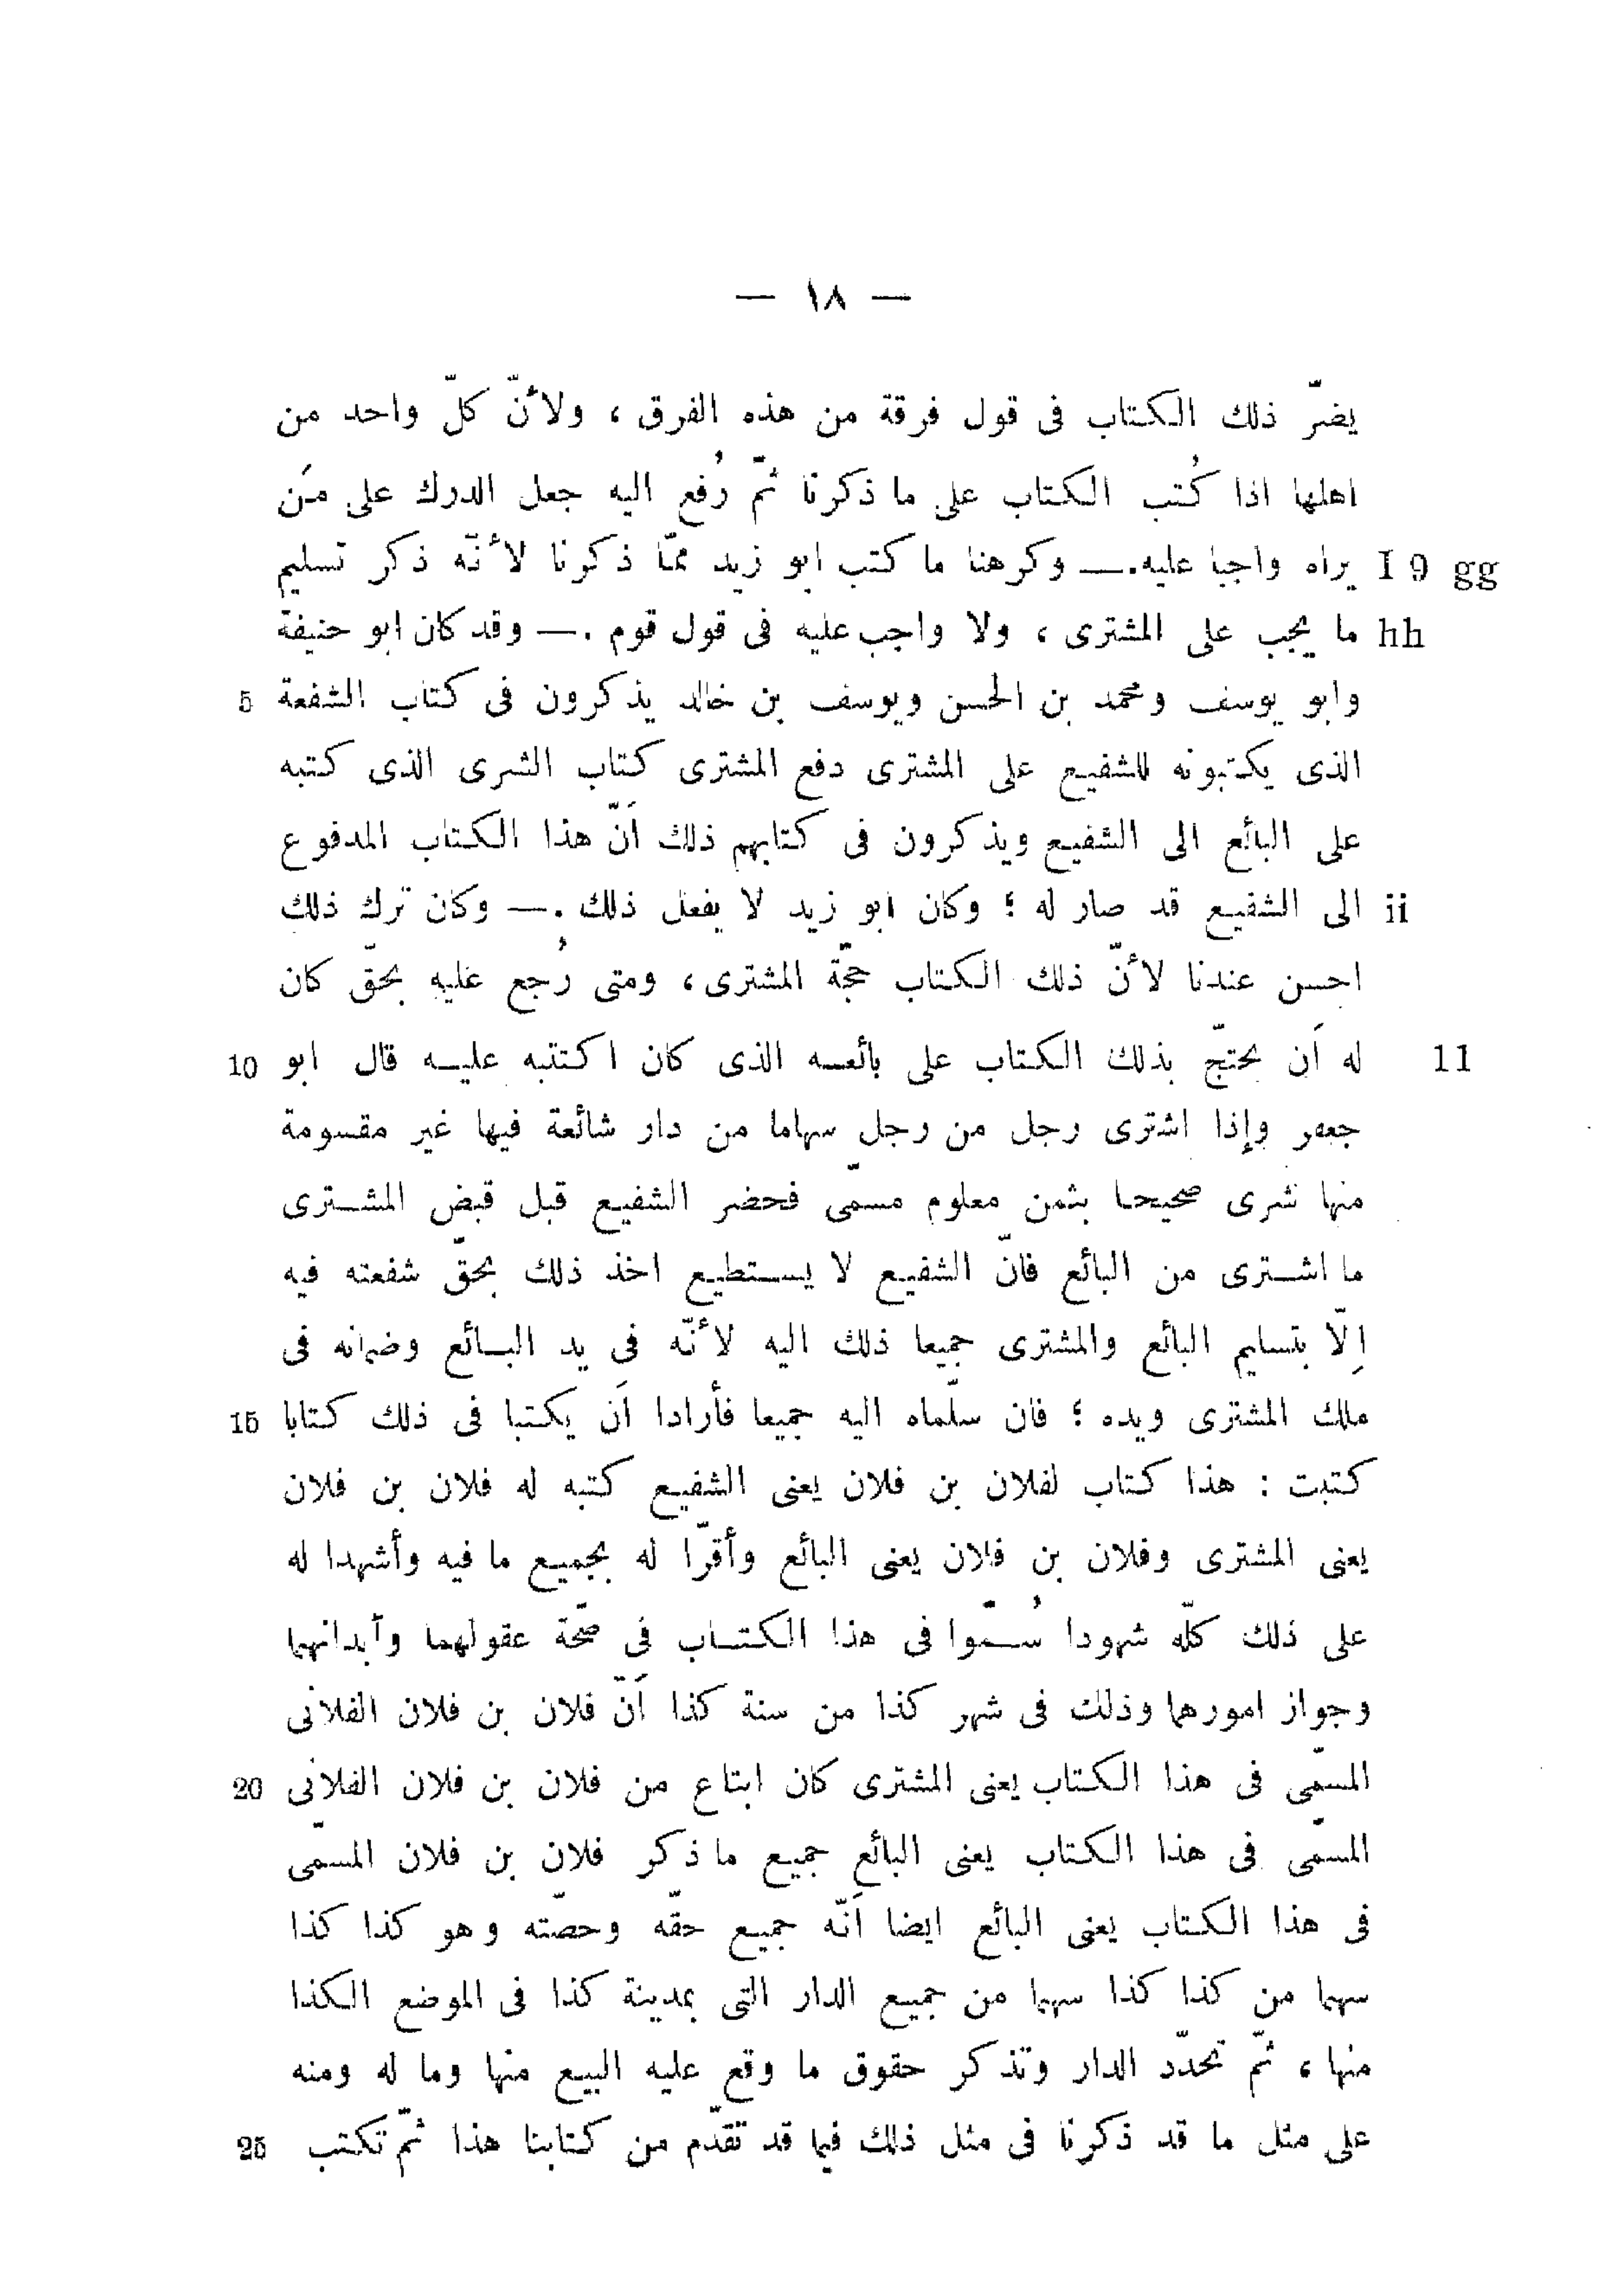 — ١٨ —
يضرّ ذلك الكتاب فى قول فرقة من هذه الفرق ، ولأنّ كلّ واحد من
اهلها اذا كُتب الكتاب على ما ذكرنا ثمّ رُفع اليه جعل الدرك على مَن
I 9 gg يراه واجبا عليه. — وكرهنا ما كتب ابو زيد ممّا ذكرنا لأنّه ذكر تسليم
hh ما يجب على المشترى ، ولا واجب عليه فى قول قوم . — وقد كان ابو حنيفة
وابو يوسف ومحمد بن الحسن ويوسف بن خالد يذكرون فى كتاب الشفعة 5
الذى يكتبونه للشفيع على المشترى دفع المشترى كتاب الشرى الذى كتبه
على البائع الى الشفيع ويذكرون فى كتابهم ذلك أَنّ هذا الكتاب المدفوع
ii الى الشفيع قد صار له ؛ وكان ابو زيد لا يفعل ذلك . — وكان ترك ذلك
احسن عندنا لأنّ ذلك الكتاب حجّة المشترى ، ومتى رُجع عليه بحقّ كان
11 له أَن يحتجّ بذلك الكتاب على بائعه الذى كان اكتتبه عليه قال ابو 10
جعفر وإذا اشترى رجل من رجل سهاما من دار شائعة فيها غير مقسومة
منها شرى صحيحا بثمن معلوم مسمّى فحضر الشفيع قبل قبض المشترى
ما اشترى من البائع فانّ الشفيع لا يستطيع اخذ ذلك بحقّ شفعته فيه
إلّا بتسليم البائع والمشترى جميعا ذلك اليه لأنّه فى يد البائع وضمانه فى
ملك المشترى ويده ؛ فان سلّماه اليه جميعا فأرادا أَن يكتبا فى ذلك كتابا 15
كتبت : هذا كتاب لفلان بن فلان يعنى الشفيع كتبه له فلان بن فلان
يعنى المشترى وفلان بن فلان يعنى البائع وأقرّا له بجميع ما فيه وأشهدا له
على ذلك كلّه شهودا سُمّوا فى هذا الكتاب فى صحّة عقولهما وأبدانهما
وجواز امورهما وذلك فى شهر كذا من سنة كذا أَنّ فلان بن فلان الفلانى
المسمّى فى هذا الكتاب يعنى المشترى كان ابتاع من فلان بن فلان الفلانى 20
المسمّى فى هذا الكتاب يعنى البائع جميع ما ذكر فلان بن فلان المسمّى
فى هذا الكتاب يعنى البائع ايضا أَنّه جميع حقّه وحصّته وهو كذا كذا
سهما من كذا كذا سهما من جميع الدار التى بمدينة كذا فى الموضع الكذا
منها ، ثمّ تحدّد الدار وتذكر حقوق ما وقع عليه البيع منها وما له ومنه
على مثل ما قد ذكرنا فى مثل ذلك فيما قد تقدّم من كتابنا هذا ثمّ تكتب 25